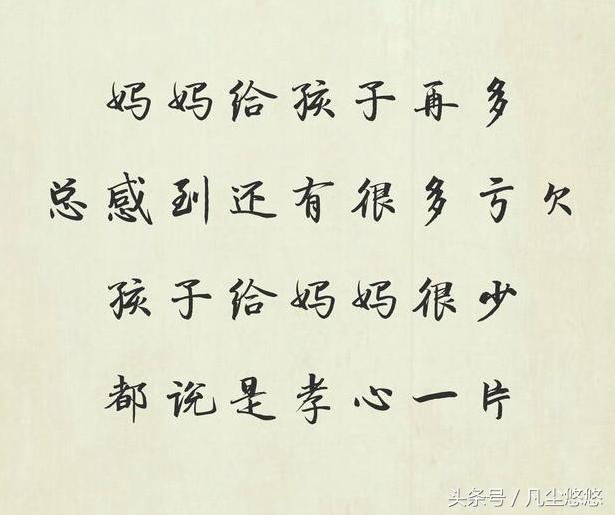 妈妈给孩子再多
总感到还有很多亏欠
孩子给妈妈很少
都说是孝心一片
头条号／凡尘悠悠